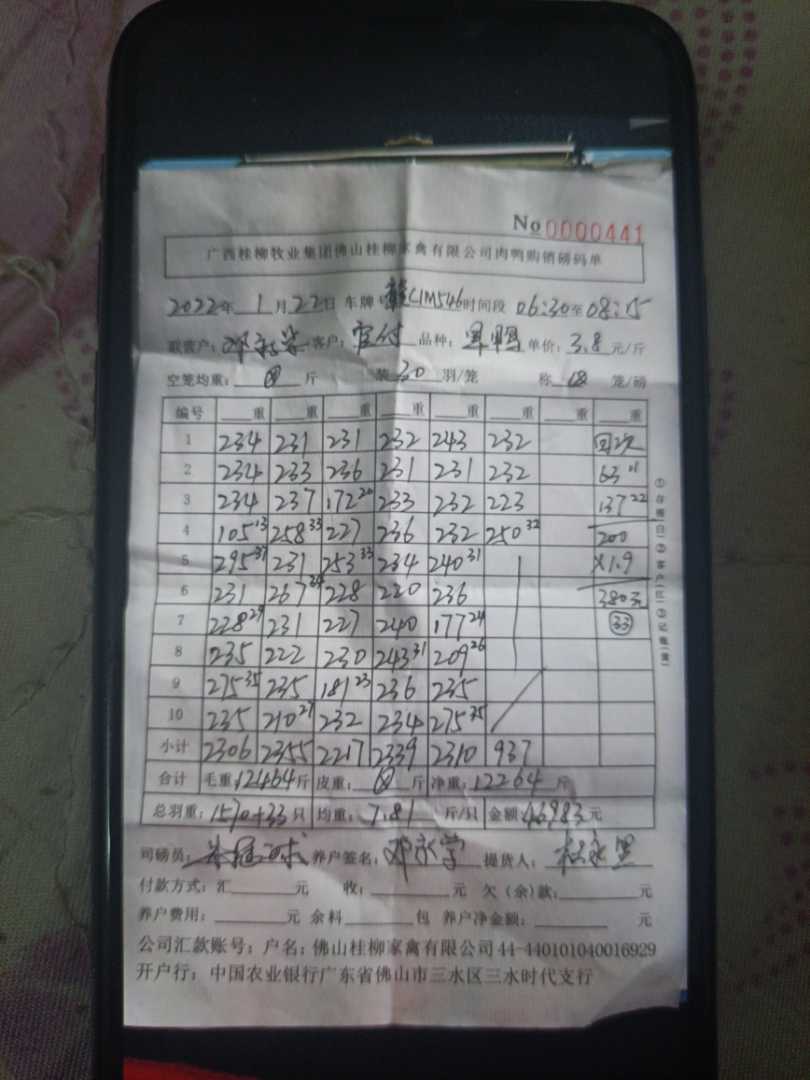 No 0000441
广西桂柳牧业集团佛山桂柳家禽有限公司肉鸭购销磅码单
2022年 1月 22日 车牌 C1M546 时间段 06:30至08:15
客户: 品种: 单价: 3.8 元/斤
空笼均重: 斤 装 30 羽/笼 称 笼/磅
编号 重 重 重 重 重 重 重 重
1 234 231 231 232 243 232 回次
2 234 233 236 231 231 232 63 11
3 234 237 172 20 233 232 223 137 22
4 105 13 258 33 227 236 232 250 32 200
5 295 37 231 253 33 234 240 31 ×1.9
6 231 267 34 228 220 236 380元
7 228 29 231 227 240 177 24 33
8 235 222 230 243 31 209 26
9 275 35 235 181 23 236 235
10 235 210 27 232 234 275 35
小计 2306 2355 2217 2339 2310 937
合计 毛重: 12464斤 皮重: 斤 净重: 12264 斤
总羽重: 1570+33 只 均重: 7.81 斤/只 金额 46983元
司磅员: 养户签名: 邓永学 提货人:
付款方式: 汇 元 收: 元 欠(余)款: 元
养户费用: 元 余料 包 养户净金额: 元
公司汇款账号: 户名: 佛山桂柳家禽有限公司 44-440101040016929
开户行: 中国农业银行广东省佛山市三水区三水时代支行
①存根(白)②客户(红)③记账(黄)